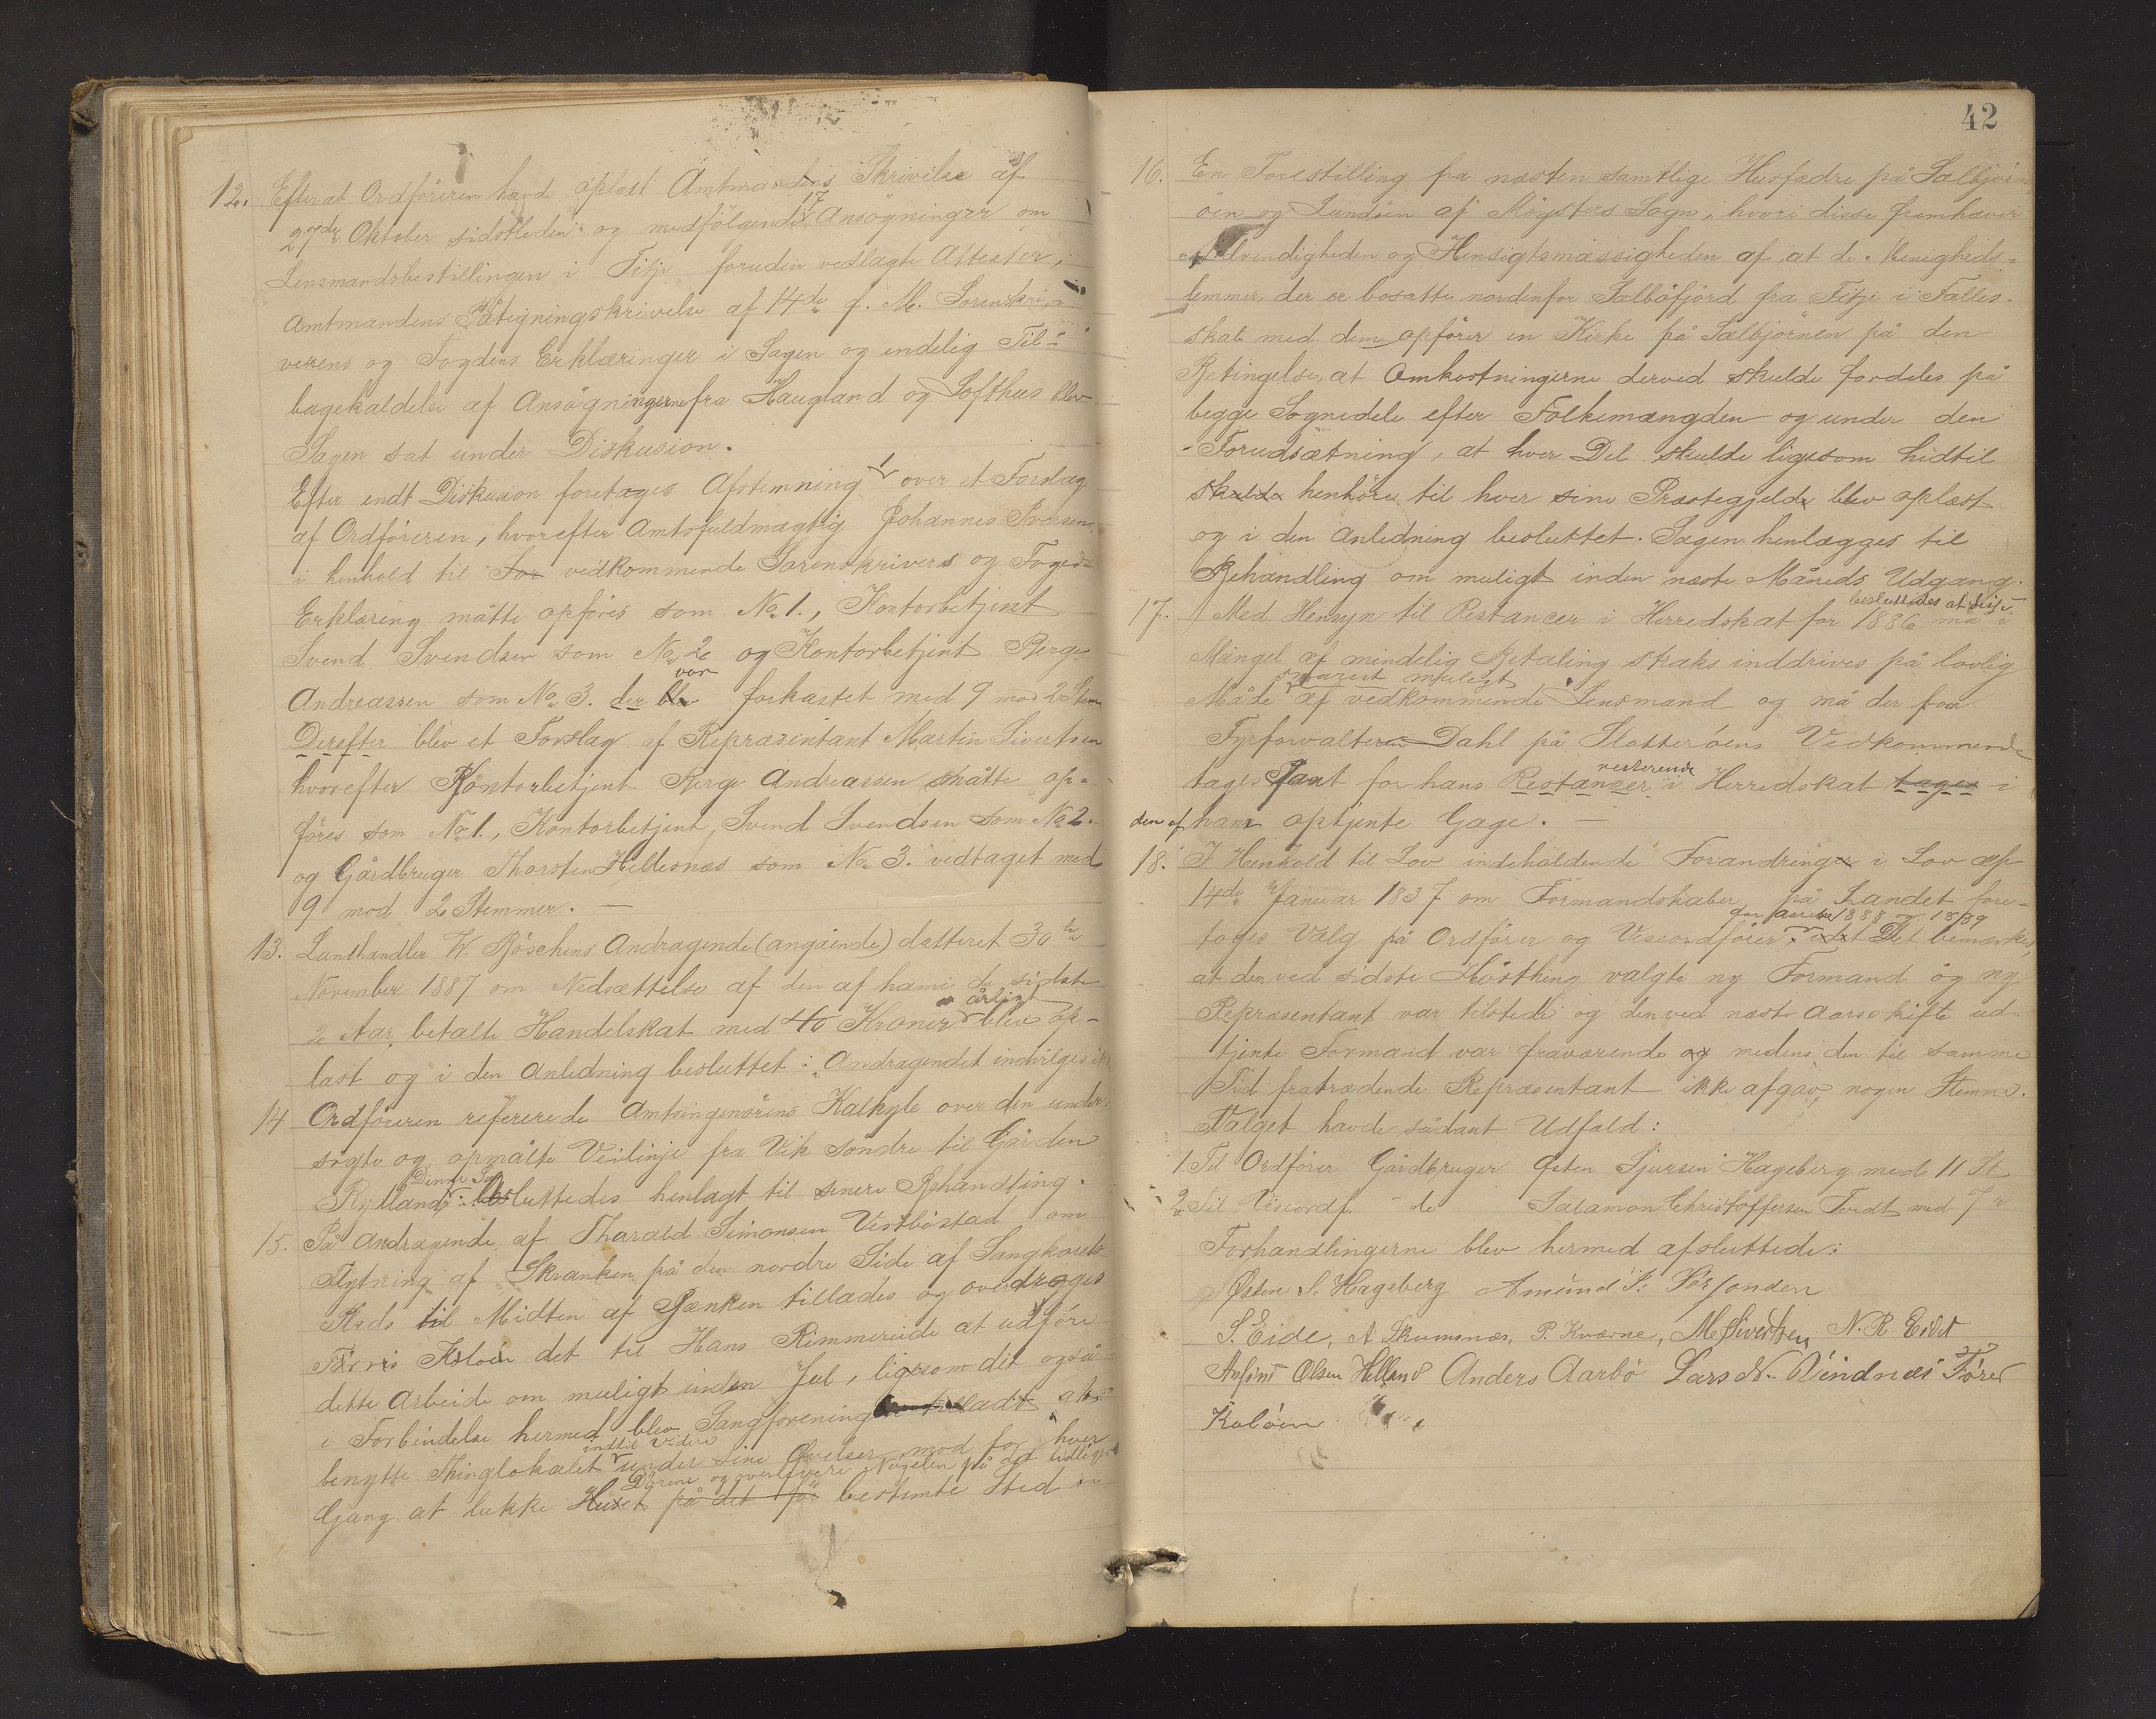 12. Efterat Ordföreren havde oplæst Amtmandens Skrivelse af
27de Oktober sidstleden og medfölgende 17 Ansögninger om
Lensmandsbestillingen i Fitje foruden vedlagte Attester,
Amtmandens Påtegningskrivelse af 14de d. M. Sorenskri-
verens og Fogdens Erklæringer i Sagen og endelig Til-
bagekaldelse af Ansögningerne fra Haugland og Lofthus blev
Sagen sat under Diskusion.
Efter endt Diskusion foretages Afstemning 1 over et Forslag
af Ordföreren, hvorefter Amtsfuldmægtig Johannes Iversen
i henhold til For vedkommende Sorenskrivers og Fogeds
Erklæring måtte opföres som No 1., Kontorbetjent
Svend Svendsen som No 2 og Kontorbetjent Berge
Andreassen som No 3. der blev var forkastet med 9 mod 2 Stem
Derefter blev et Forslag af Repræsentant Martin Sivertsen
hvorefter Kontorbetjent Berge Andreassen måtte op-
föres som No 1., Kontorbetjent, Svend Svendsen som No 2.
og Gårdbruger Thorsten Hellesnæs som No 3. vedtaget med
9 mod 2 Stemmer. —
13. Landhandler W. Röschens Andragende (angående) datteret 30te
November 1887 om Nedsættelse af den af ham i de sidste
2 Aar betalte Handelskat med 40 Kroner årligt blev op-
læst og i den Anledning besluttet: "Andragendet indvilges ik
14 Ordföreren refererede Amtsingeniörens Kalkyle over den under-
sögte og opmålte Veilinje fra Vik söndre til Gården
Denne Sag
Rydland: besluttedes henlagt til senere Behandling.
15. På Andragende af Tharald Simonsen Vestböstad om
Flytning af Skranken på den nordre Side af Sangkorets
Plads til Midten af Bænken tillades og overdrages
Törris Kalöen det til Hans Rimmereide at udföre
dette Arbeide om muligt inden Jul, ligesom det også
i Forbindelse hermed blev Sangforeningen tilladt at
indtil Videre
benytte Thinglokalet under sine Øvelser mod for hver
Dörene og overlevere Nögelen på det tidligere
Gang at lukke Huset på det för bestemte Sted
42
16. En Forestilling fra næsten samtlige Husfædre på Sælbjörn
öen og Lundöen af Mögsters Sogn, hvori disse fremhæver
Nödvendigheden og Hensigtsmæssigheden af, at de Menigheds-
lemmer, der er bosatte nordenfor Sælböfjord fra Fitje i Fælles-
skab med dem opförer en Kirke på Sælbjörnen på den
Betingelse, at Omkostningerne derved skulde fordeles på
begge Sognedele efter Folkemængden og under den
Forudsætning, at hver Del skulde ligesom hidtil
skulde henhöre til hver sine Præstegjeld blev oplæst
og i den Anledning besluttet. Sagen henlægges til
Behandling om muligt inden næste Måneds Udgang.
besluttedes at disse
17. Med Hensyn til Restancer i Herredskat for 1886 må i
Mangel af mindelig Betaling straks inddrives på lovlig
snarest muligt
Måde af vedkommende Lensmand og må der for
Fyrforvalteren Dahl på Slotteröens Vedkommende
resterende
tages Pant for hans Restancer i Herredskat tages i
den af ham optjente Gage. —
18. I Henhold til Lov indeholdende Forandringer i Lov af
14de Januar 1837 om Formandskaber på Landet fore-
for Aarene 1888 og 1889
toges Valg på Ordförer og Viseordförer, idet Det bemærkes,
at den ved sidste Höstthing valgte ny Formand og ny
Repræsentant var tilstede og den ved næste Aarsskifte ud-
tjente Formand var fraværende og medens den til samme
Tid fratrædende Repræsentant ikke afgav nogen Stemme.
Valget havde sådant Udfald:
1. Til Ordförer Gårdbruger Østen Sjursen Hageberg med 11 St
2 Til Viseordf. - do Salamon Christoffersen Tvedt med 7 "
Forhandlingerne blev hermed afsluttede:
Østen S. Hageberg Amund P. Sörfonden
S. Eide, A. Skumsnæs, P. Kværne, M. Sivertsen N. R. Eidet
Anfind Olsen Helland Anders Aarbö Lars N. Vindnæs Törres
Kalöen